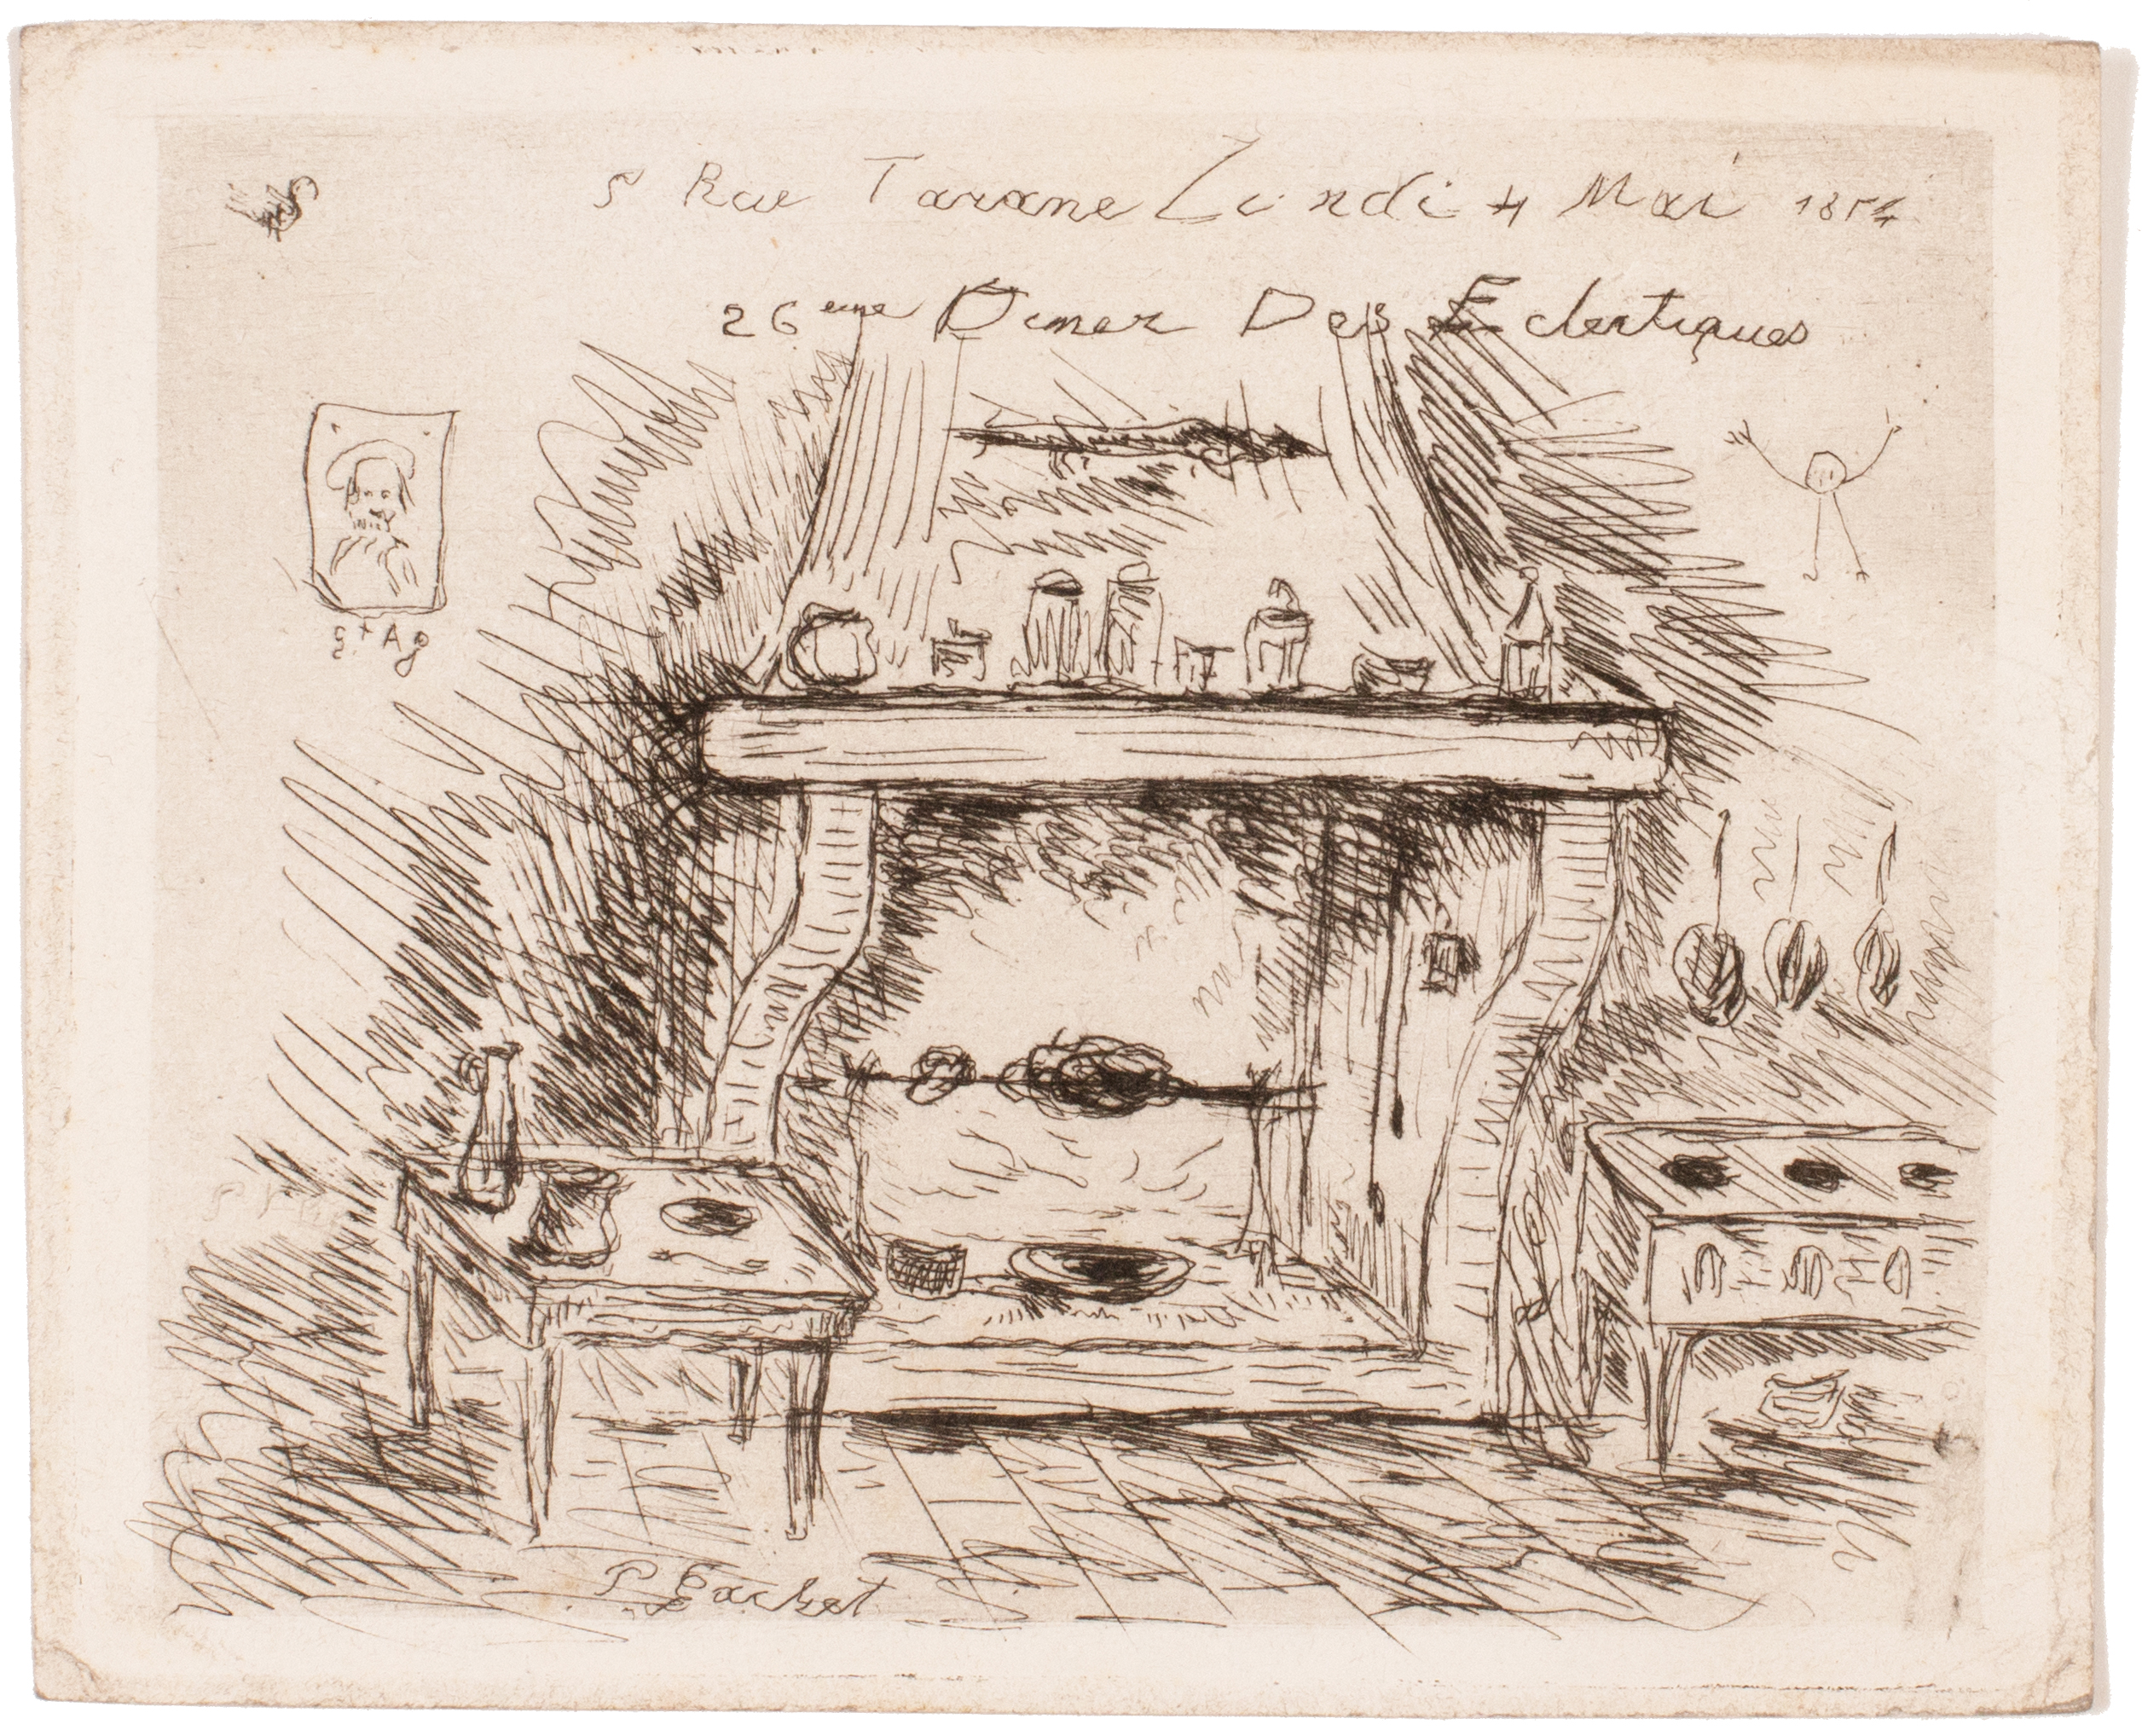 5 Rue Tarane Lundi 4 Mai 1874
26eme Diner Des Eclectiques
P Gachet